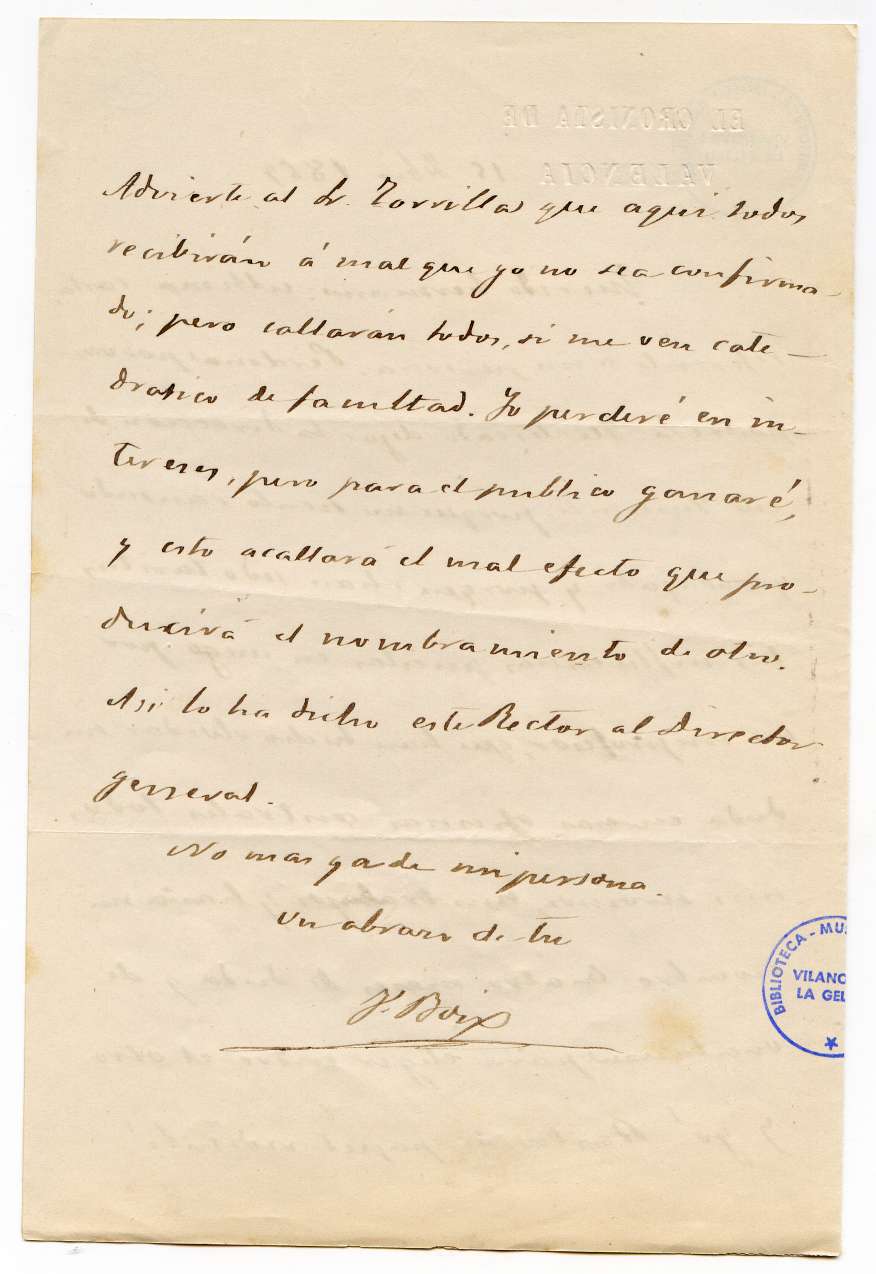 Advierte al Sr. Zorrilla que aqui todos
recibirán á mal que yo no sea confirma-
do; pero callarán todos, si me ven cate-
dratico de facultad. Yo perderé en in-
tereses, pero para el publico ganaré,
y esto acallará el mal efecto que pro-
ducirá el nombramiento de otro.
Asi lo ha dicho este Rector al Director
general.
No mas ya de mi persona.
Un abrazo de tu
V. Boix
BIBLIOTECA - MU
VILANO
LA GEL
EL CRONISTA DE
VALENCIA